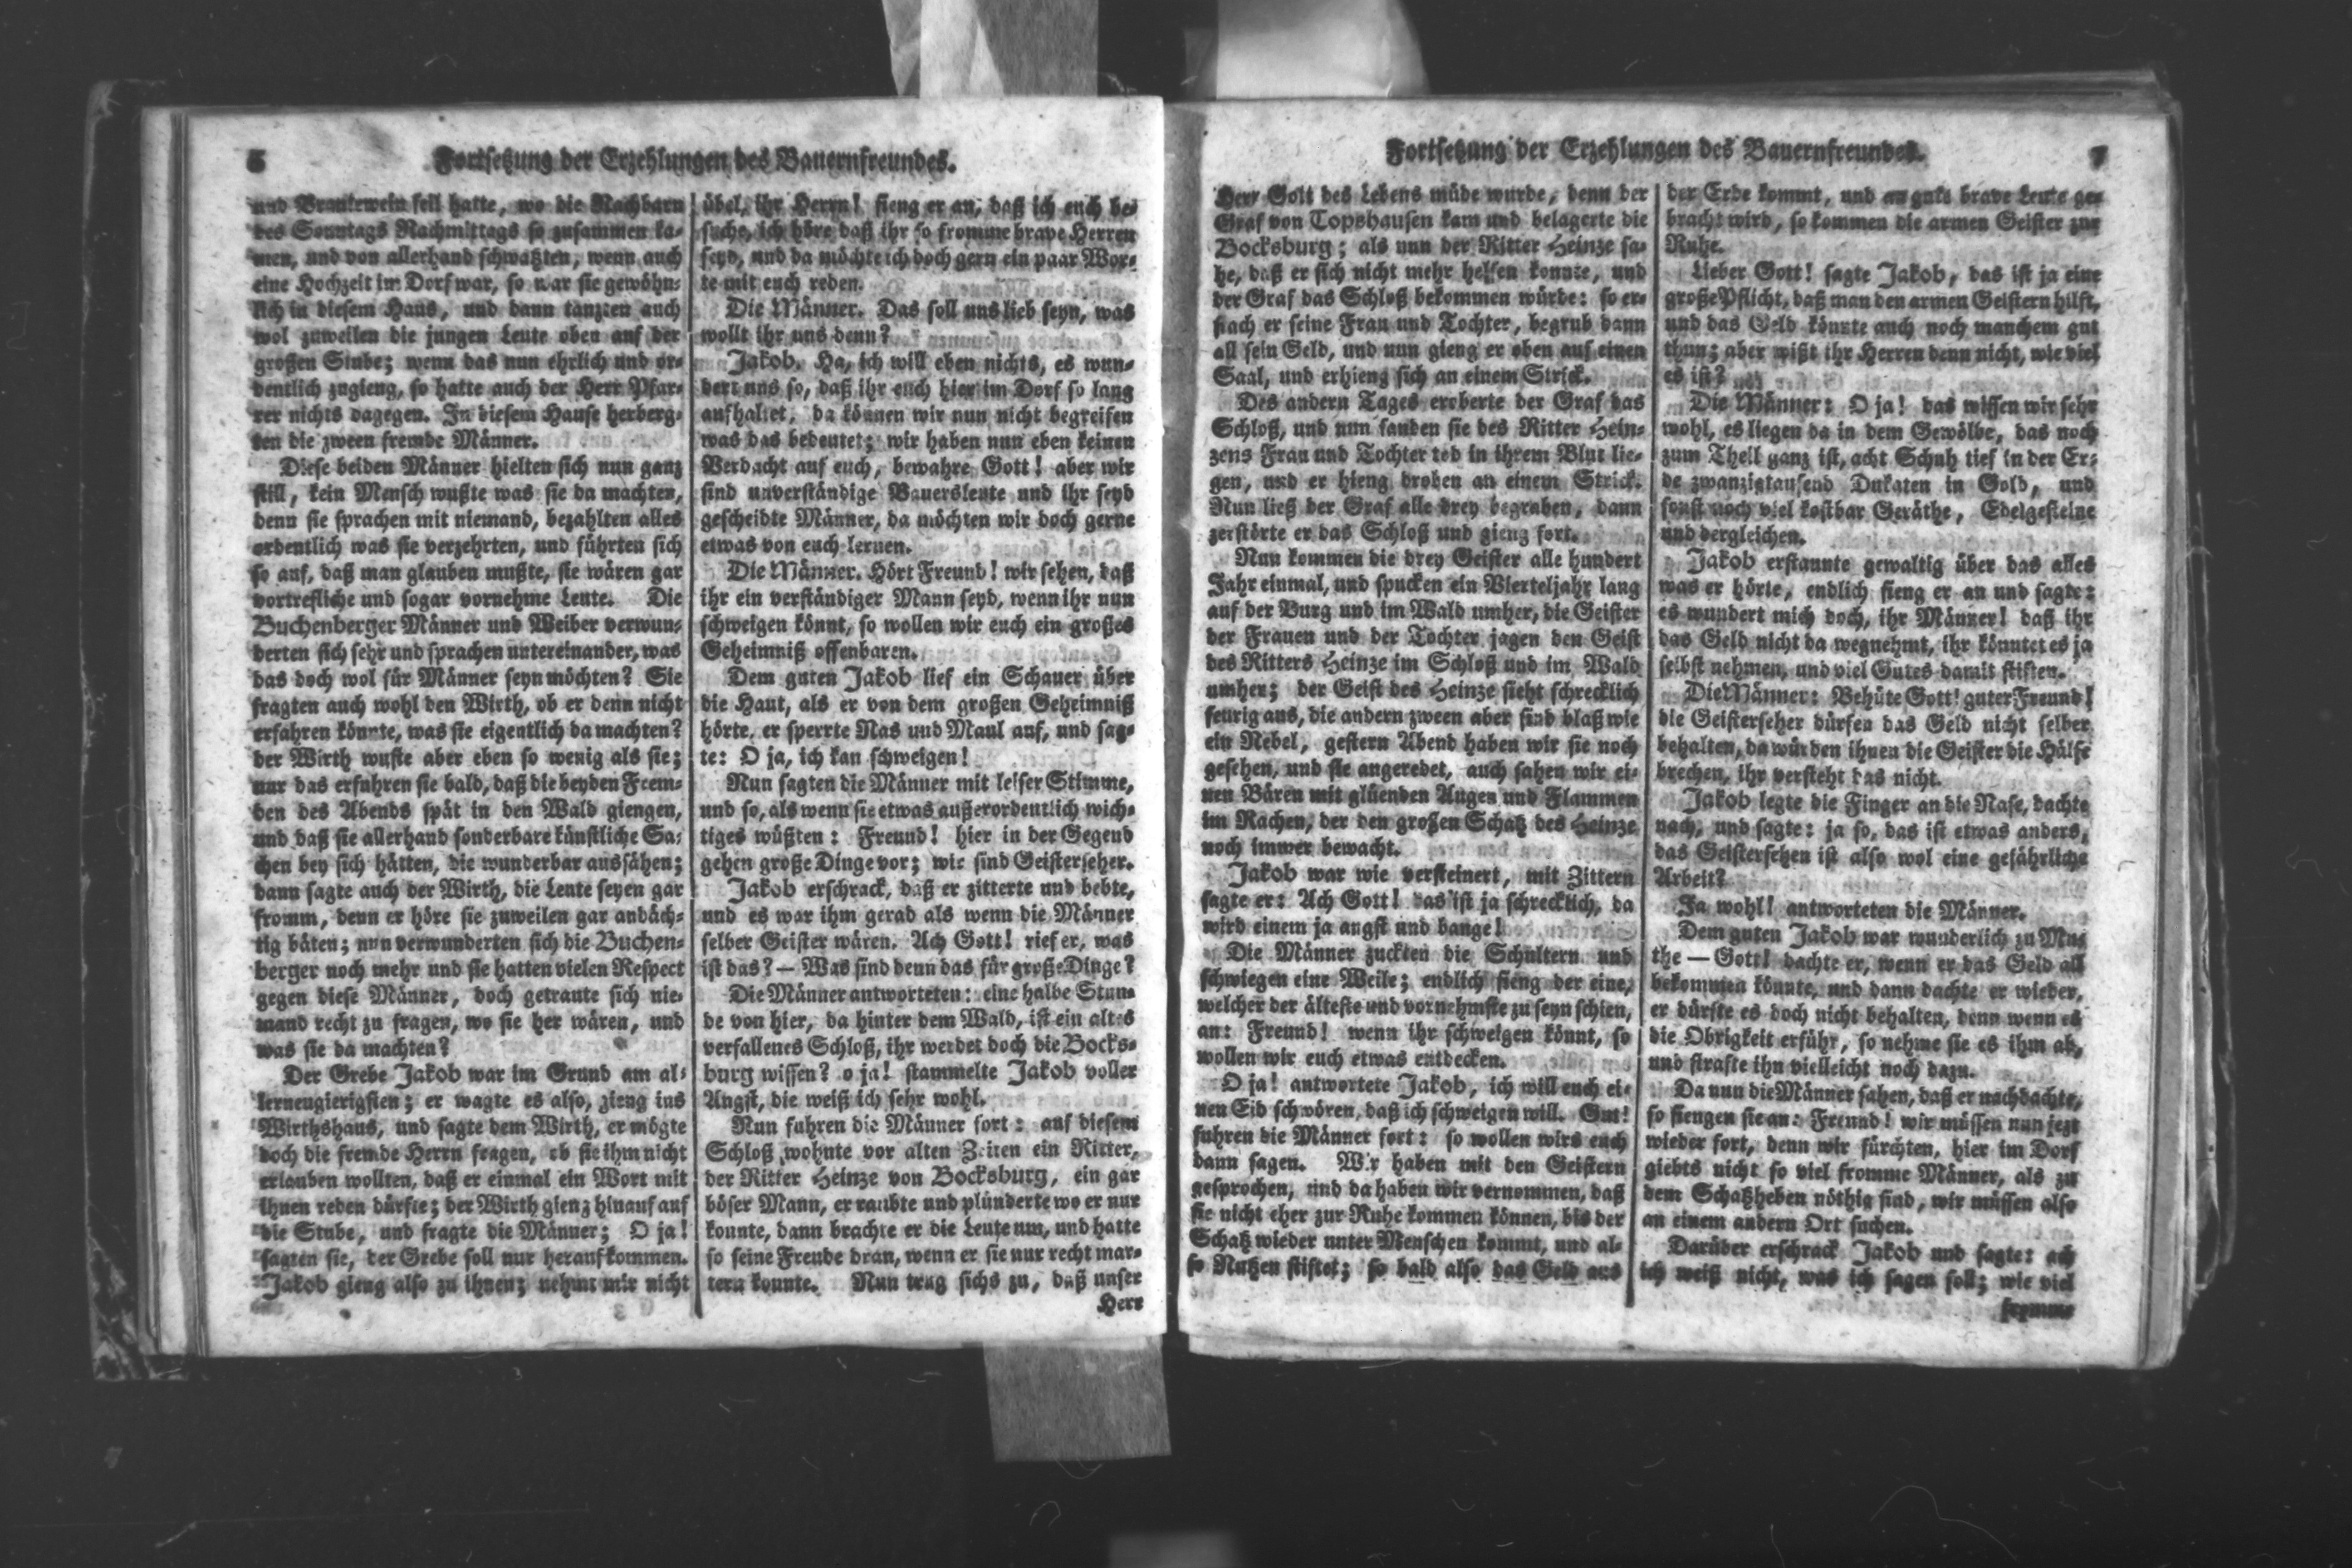 6
Fortsetzung der Erzehlungen des Bauernfreundes.
und Brantewein feil hatte, wo die Nachbarn
des Sonntags Nachmittags so zusammen ka-
men, und von allerhand schwatzten, wenn auch
eine Hochzeit im Dorf war, so war sie gewöhn-
lich in diesem Haus, und dann tanzten auch
wol zuweilen die jungen Leute oben auf der
großen Stube; wenn das nun ehrlich und or-
dentlich zugieng, so hatte auch der Herr Pfar-
rer nichts dagegen. In diesem Hause herberg-
ten die zween fremde Männer.
Diese beiden Männer hielten sich nun ganz
still, kein Mensch wußte was sie da machten,
denn sie sprachen mit niemand, bezahlten alles
ordentlich was sie verzehrten, und führten sich
so auf, daß man glauben mußte, sie wären gar
vortrefliche und sogar vornehme Leute. Die
Buchenberger Männer und Weiber verwun-
derten sich sehr und sprachen untereinander, was
das doch wol für Männer seyn möchten? Sie
fragten auch wohl den Wirth, ob er denn nicht
erfahren könnte, was sie eigentlich da machten?
der Wirth wuste aber eben so wenig als sie;
nur das erfuhren sie bald, daß die beyden Frem-
den des Abends spät in den Wald giengen,
und daß sie allerhand sonderbare künstliche Sa-
chen bey sich hätten, die wunderbar aussähen;
dann sagte auch der Wirth, die Leute seyen gar
fromm, denn er höre sie zuweilen gar andäch-
tig bäten; nun verwunderten sich die Buchen-
berger noch mehr und sie hatten vielen Respect
gegen diese Männer, doch getraute sich nie-
mand recht zu fragen, wo sie her wären, und
was sie da machten?
Der Grebe Jakob war im Grund am al-
lerneugierigsten; er wagte es also, gieng ins
Wirthshaus, und sagte dem Wirth, er mögte
doch die fremde Herrn fragen, ob sie ihm nicht
erlauben wollten, daß er einmal ein Wort mit
ihnen reden dürfte; der Wirth gieng hinauf auf
die Stube, und fragte die Männer; O ja!
sagten sie, der Grebe soll nur herauf kommen.
Jakob gieng also zu ihnen; nehmt mir nicht
übel, ihr Herrn! fieng er an, daß ich euch be-
suche, ich höre daß ihr so fromme brave Herren
seyd, und da möchte ich doch gern ein paar Wor-
te mit euch reden.
Die Männer. Das soll uns lieb seyn, was
wollt ihr uns denn?
Jakob. Ha, ich will eben nichts, es wun-
dert uns so, daß ihr euch hier im Dorf so lang
aufhaltet, da können wir nun nicht begreifen
was das bedeutet; wir haben nun eben keinen
Verdacht auf euch, bewahre Gott! aber wir
sind unverständige Bauersleute und ihr seyd
gescheidte Männer, da möchten wir doch gerne
etwas von euch lernen.
Die Männer. Hört Freund! wir sehen, daß
ihr ein verständiger Mann seyd, wenn ihr nun
schweigen könnt, so wollen wir euch ein großes
Geheimniß offenbaren.
Dem guten Jakob lief ein Schauer über
die Haut, als er von dem großen Geheimniß
hörte, er sperrte Nas und Maul auf, und sag-
te: O ja, ich kan schweigen!
Nun sagten die Männer mit leiser Stimme,
und so, als wenn sie etwas außerordentlich wich-
tiges wüßten: Freund! hier in der Gegend
gehen große Dinge vor; wir sind Geisterseher.
Jakob erschrack, daß er zitterte und bebte,
und es war ihm gerad als wenn die Männer
selber Geister wären. Ach Gott! rief er, was
ist das? — Was sind denn das für große Dinge?
Die Männer antworteten: eine halbe Stun-
de von hier, da hinter dem Wald, ist ein altes
verfallenes Schloß, ihr werdet doch die Bocks-
burg wissen? o ja! stammelte Jakob voller
Angst, die weiß ich sehr wohl.
Nun fuhren die Männer fort: auf diesem
Schloß wohnte vor alten Zeiten ein Ritter,
der Ritter Heinze von Bocksburg, ein gar
böser Mann, er raubte und plünderte wo er nur
konnte, dann brachte er die Leute um, und hatte
so seine Freude dran, wenn er sie nur recht mar-
tern konnte. Nun trug sichs zu, daß unser
Herr
Fortsetzung der Erzehlungen des Bauernfreundes.
7
Herr Gott des Lebens müde wurde, denn der
Graf von Topshausen kam und belagerte die
Bocksburg; als nun der Ritter Heinze sa-
he, daß er sich nicht mehr helfen konnte, und
der Graf das Schloß bekommen würde: so er-
stach er seine Frau und Tochter, begrub dann
all sein Geld, und nun gieng er oben auf einen
Saal, und erhieng sich an einem Strick.
Des andern Tages eroberte der Graf das
Schloß, und nun fanden sie des Ritter Hein-
zens Frau und Tochter tod in ihrem Blut lie-
gen, und er hieng droben an einem Strick.
Nun ließ der Graf alle drey begraben, dann
zerstörte er das Schloß und gieng fort.
Nun kommen die drey Geister alle hundert
Jahr einmal, und spucken ein Vierteljahr lang
auf der Burg und im Wald umher, die Geister
der Frauen und der Tochter jagen den Geist
des Ritters Heinze im Schloß und im Wald
umher; der Geist des Heinze sieht schrecklich
feurig aus, die andern zween aber sind blaß wie
ein Nebel, gestern Abend haben wir sie noch
gesehen, und sie angeredet, auch sahen wir ei-
nen Bären mit glüenden Augen und Flammen
im Rachen, der den großen Schatz des Heinze
noch immer bewacht.
Jakob war wie versteinert, mit Zittern
sagte er: Ach Gott! das ist ja schrecklich, da
wird einem ja angst und bange!
Die Männer zuckten die Schultern und
schwiegen eine Weile; endlich fieng der eine,
welcher der älteste und vornehmste zu seyn schien,
an: Freund! wenn ihr schweigen könnt, so
wollen wir euch etwas entdecken.
O ja! antwortete Jakob, ich will euch ei-
nen Eid schwören, daß ich schweigen will. Gut!
fuhren die Männer fort: so wollen wirs euch
dann sagen. Wir haben mit den Geistern
gesprochen, und da haben wir vernommen, daß
sie nicht eher zur Ruhe kommen können, bis der
Schatz wieder unter Menschen kommt, und al-
so Nutzen stiftet; so bald also das Geld aus
der Erde kommt, und an gute brave Leute ge-
bracht wird, so kommen die armen Geister zur
Ruhe.
Lieber Gott! sagte Jakob, das ist ja eine
große Pflicht, daß man den armen Geistern hilft,
und das Geld könnte auch noch manchem gut
thun; aber wißt ihr Herren denn nicht, wie viel
es ist?
Die Männer: O ja! das wissen wir sehr
wohl, es liegen da in dem Gewölbe, das noch
zum Theil ganz ist, acht Schuh tief in der Er-
de zwanzigtausend Dukaten in Gold, und
sonst noch viel kostbar Geräthe, Edelgesteine
und dergleichen.
Jakob erstaunte gewaltig über das alles
was er hörte, endlich fieng er an und sagte:
es wundert mich doch, ihr Männer! daß ihr
das Geld nicht da wegnehmt, ihr könntet es ja
selbst nehmen, und viel Gutes damit stiften.
Die Männer: Behüte Gott! guter Freund!
die Geisterseher dürfen das Geld nicht selber
behalten, da würden ihnen die Geister die Hälse
brechen, ihr versteht das nicht.
Jakob legte die Finger an die Nase, dachte
nach, und sagte: ja so, das ist etwas anders,
das Geistersehen ist also wol eine gefährliche
Arbeit?
Ja wohl! antworteten die Männer.
Dem guten Jakob war wunderlich zu Mu-
the — Gott! dachte er, wenn er das Geld all
bekommen könnte, und dann dachte er wieder,
er dürfte es doch nicht behalten, denn wenn es
die Obrigkeit erführ, so nehme sie es ihm ab,
und strafte ihn vielleicht noch dazu.
Da nun die Männer sahen, daß er nachdachte,
so fiengen sie an: Freund! wir müssen nun jezt
wieder fort, denn wir fürchten, hier im Dorf
giebts nicht so viel fromme Männer, als zu
dem Schatzheben nöthig sind, wir müssen also
an einem andern Ort suchen.
Darüber erschrack Jakob und sagte: ach
ich weiß nicht, was ich sagen soll; wie viel
fromme